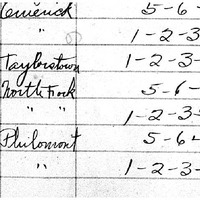 Limerick 5-6-
" 1-2-3-
Taylorstown 1-2-3-
North Fork 5-6-
" " 1-2-3-
Philomont 5-64
" 1-2-3-